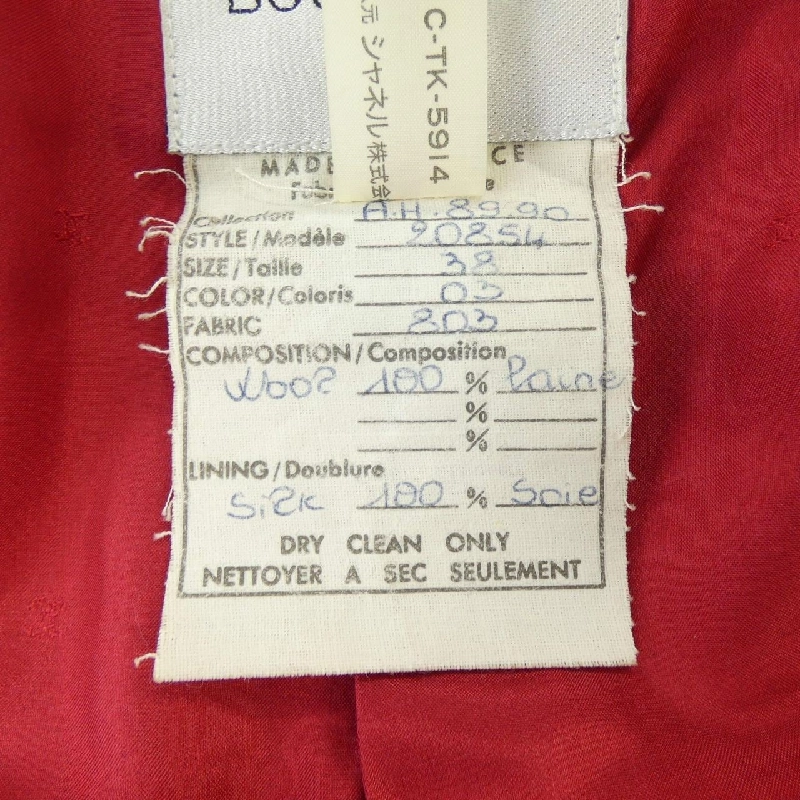 C-TK-5914
元 シャネル株式会
MADE CE
Fabr e
Collection A.H. 89.90
STYLE/Modèle 20854
SIZE/Taille 38
COLOR/Coloris 03
FABRIC 803
COMPOSITION/Composition
Wool 100 % Laine
%
%
LINING/Doublure
Silk 100 % Soie
DRY CLEAN ONLY
NETTOYER A SEC SEULEMENT